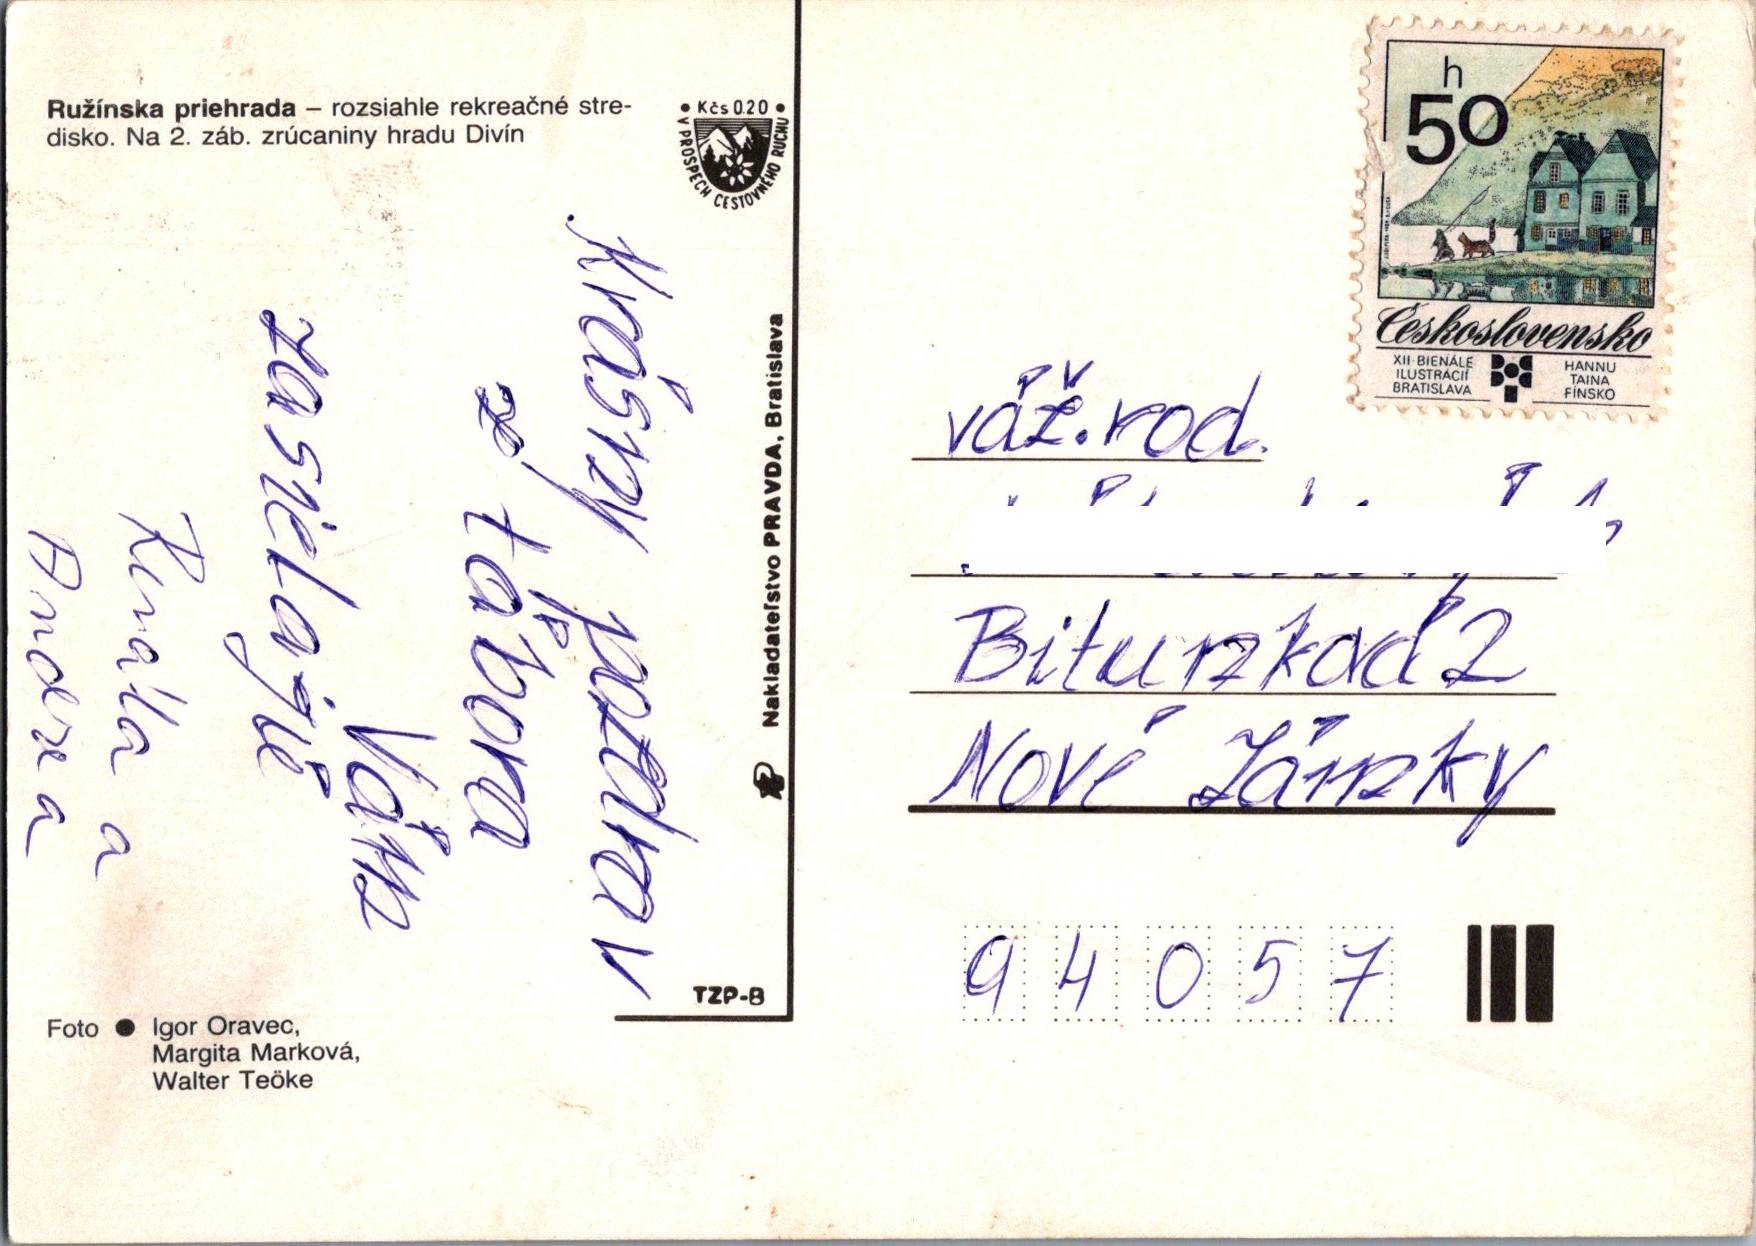 Ružínska priehrada – rozsiahle rekreačné stre-
disko. Na 2. záb. zrúcaniny hradu Divín
Kčs 0.20
V PROSPECH CESTOVNÉHO RUCHU
Krásny pozdrav
z tábora
Vám
zasielajú
Renáta a
Andrea
Nakladateľstvo PRAVDA, Bratislava
TZP-8
Foto ● Igor Oravec,
Margita Marková,
Walter Teöke
h
50
Československo
XII. BIENÁLE
ILUSTRÁCIÍ
BRATISLAVA
HANNU
TAINA
FÍNSKO
váž. rod.
2
Nové Zámky
94057